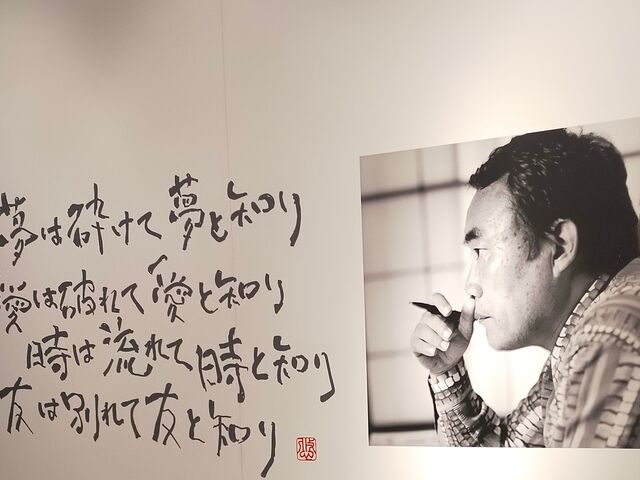 夢は砕けて夢と知り
愛は破れて愛と知り
時は流れて時と知り
友は別れて友と知り
悠